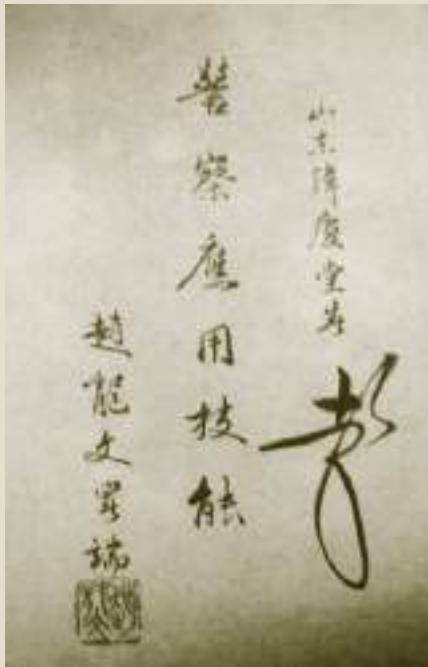 山東韓慶堂著
警察應用技能
趙龍文署端